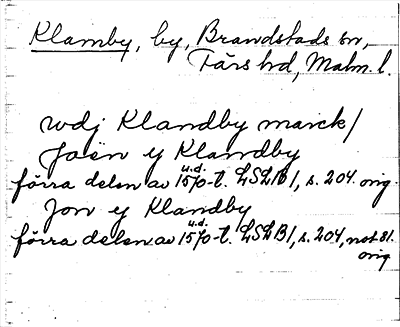 Klamby, by, Brandstads sn,
Färs hd, Malm. l.
wdj Klandby marck/
Joen y Klandby
förra delen av u.d. 1570-t. LSLB 1, s. 204. orig.
Jon y Klandby
förra delen av u.d. 1570-t. LSLB 1, s. 204, not 81.
orig